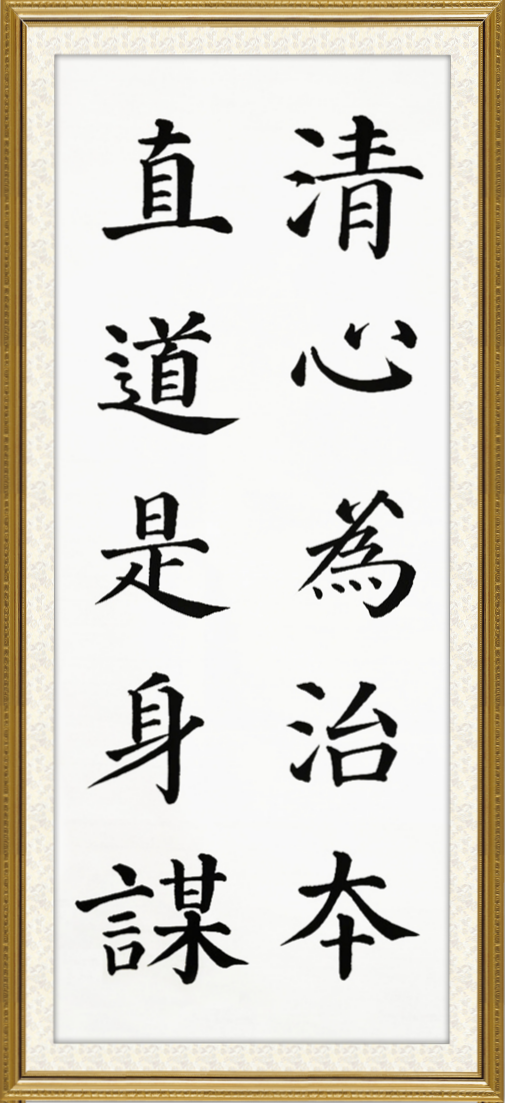 清心為治本
直道是身謀